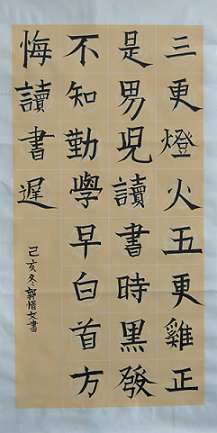 三更燈火五更雞正
是男兒讀書時黑發
不知勤學早白首方
悔讀書遲
己亥冬郭惜文書